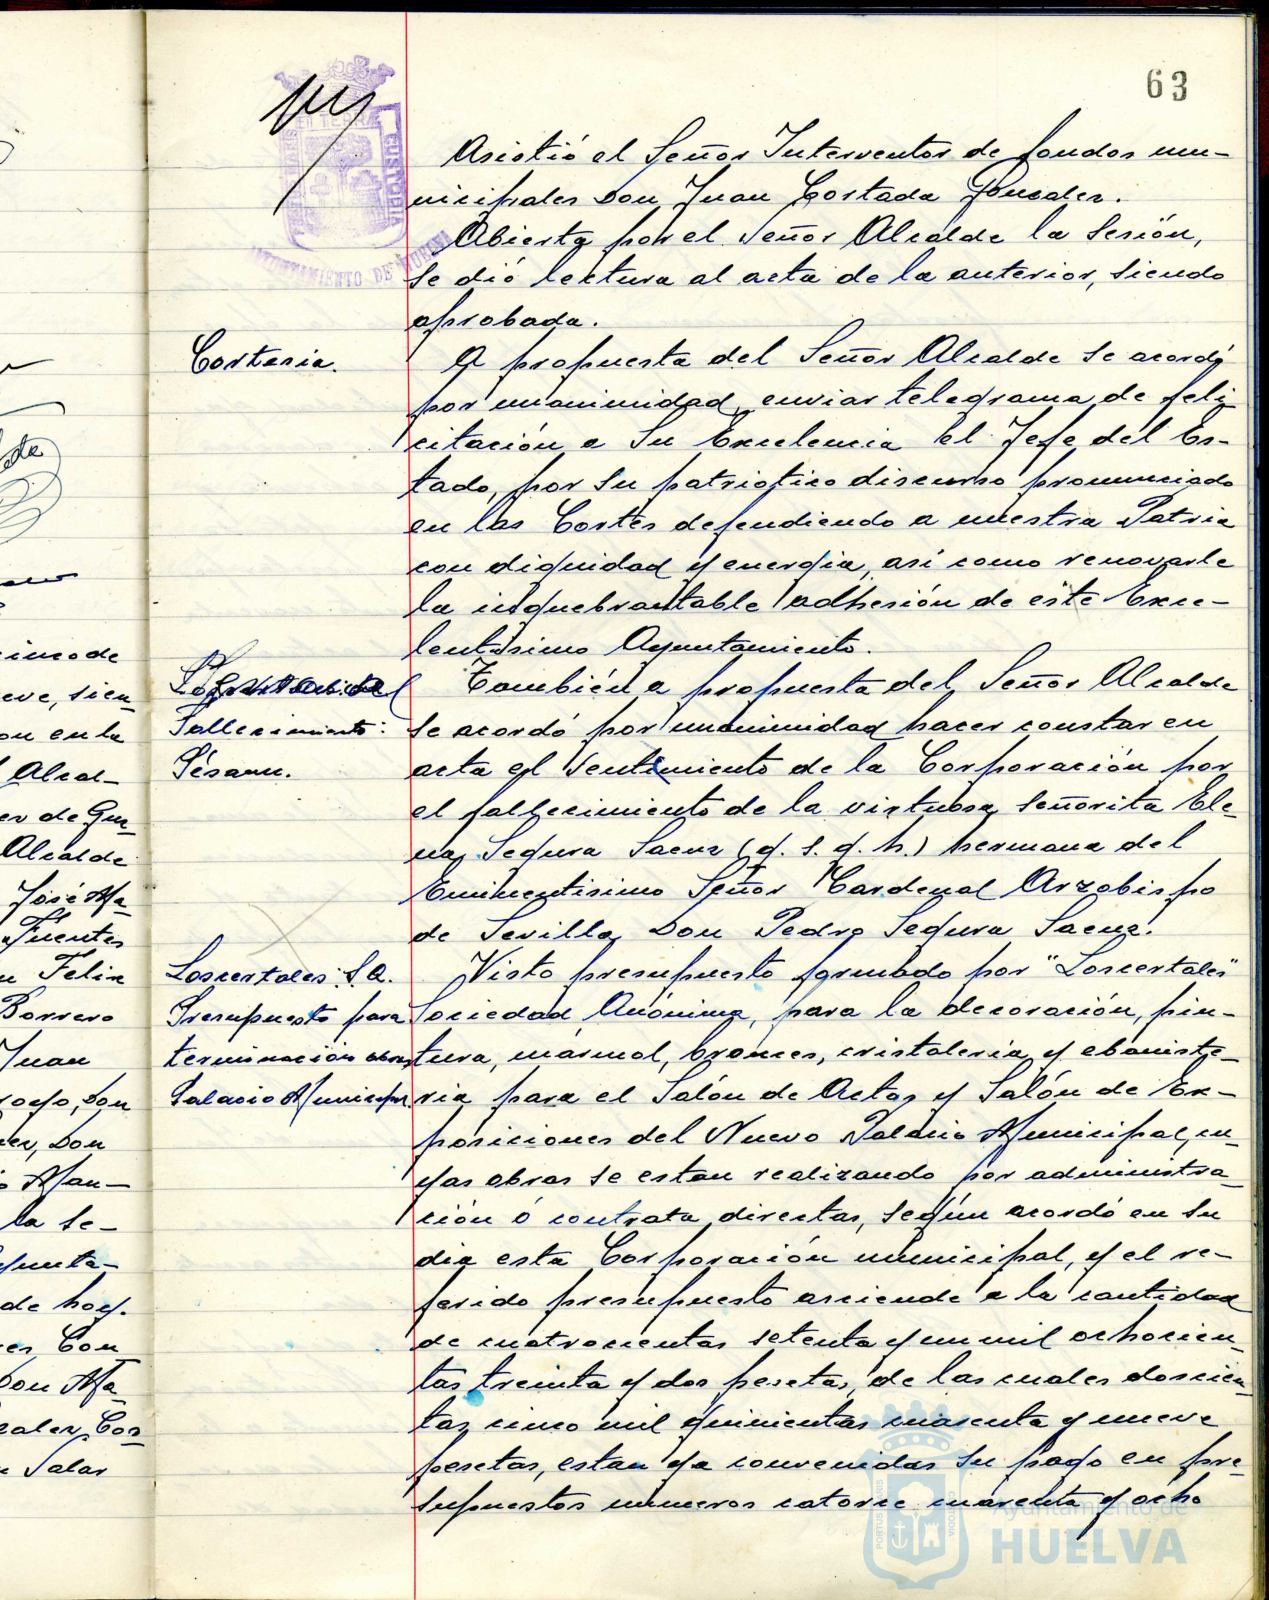 63
EN TERRA
CUSTODIA
AYUNTAMIENTO DE HUELVA
Asistió el Señor Interventor de fondos mu-
nicipales Don Juan Cortada Gonzalez.
Abierta por el Señor Alcalde la Sesión,
se dió lectura al acta de la anterior, siendo
aprobada.
Cortesia.
A propuesta del Señor Alcalde se acordó
por unanimidad enviar telegrama de feli-
citación a Su Excelencia el Jefe del Es-
tado, por su patriotico discurso pronunciado
en las Cortes defendiendo a nuestra Patria
con dignidad y energia, asi como renovarle
la inquebrantable adhesión de este Exce-
lentisimo Ayuntamiento.
Fallecimiento:
Pésame.
Tambien a propuesta del Señor Alcalde
se acordó por unanimidad hacer constar en
acta el Sentimiento de la Corporación por
el fallecimiento de la virtuosa señorita Ele-
na Segura Saenz (q. s. g. h.) hermana del
Eminentisimo Señor Cardenal Arzobispo
de Sevilla, Don Pedro Segura Saenz.
Loscertales S.A.
Presupuesto para
terminación obras
Palacio Municipal
Visto presupuesto formulado por "Loscertales"
Sociedad Anónima, para la decoración, pin-
tura, marmol, bronces, cristaleria y ebaniste-
ria para el Salón de Actos y Salón de Ex-
posiciones del Nuevo Palacio Municipal, cu-
yas obras se estan realizando por administra-
ción ó contrata directas, según acordó en su
dia esta Corporación municipal, y el re-
ferido presupuesto asciende a la cantidad
de cuatrocientas setenta y un mil ochocien-
tas treinta y dos pesetas, de las cuales doscien-
tas cinco mil quinientas cuarenta y nueve
pesetas, estan ya convenidas su pago en pre-
supuestos numeros catorce cuarenta y ocho
cinco de
eve, sien-
on en la
l Alcal-
er de Guz-
Alcalde
José Ma-
Fuentes
n Felix
Borrero
Juan
royo, Don
er, Don
o Man-
la Se-
yunta-
de hoy.
res Con-
Don Ma-
zalez Cor-
n Salas
Ayuntamiento de
HUELVA